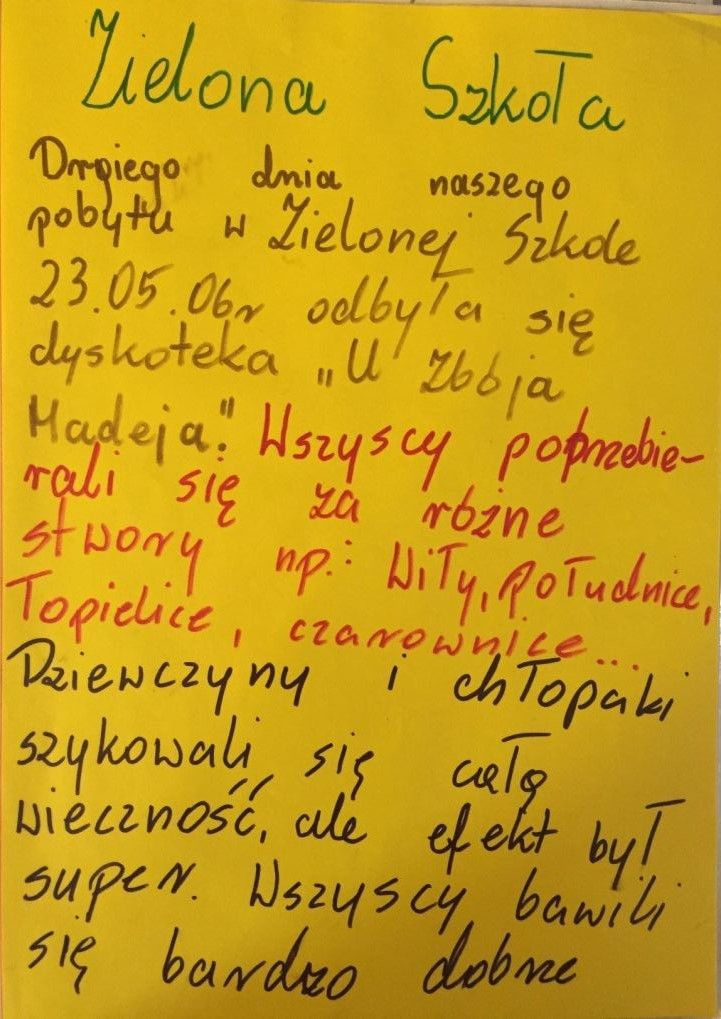 Zielona Szkoła
Drgiego dnia naszego
pobytu w Zielonej Szkole
23.05.06r odbyła się
dyskoteka „U Zbója
Madeja". Wszyscy poprzebie-
rali się za różne
stwory np.: Wiły, południce,
Topielice, czarownice...
Dziewczyny i chłopaki
szykowali się całą
wieczność, ale efekt był
super. Wszyscy bawili
się bardzo dobrze